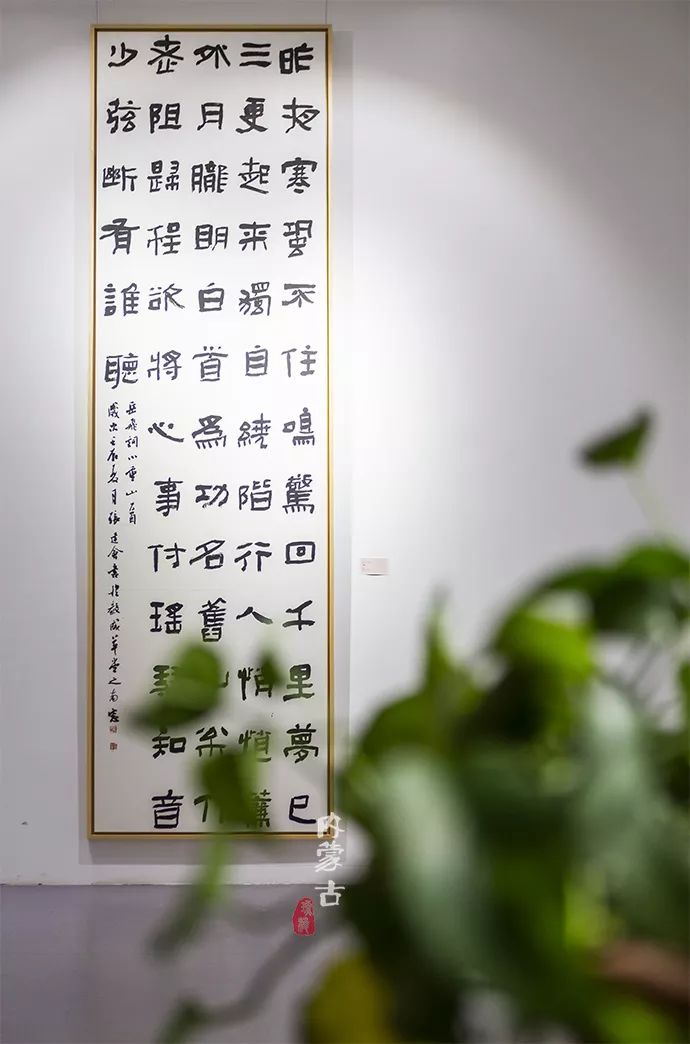 昨夜寒蛩不住鳴驚回千里夢已
三更起來獨自繞階行人悄悄簾
外月朧明白首為功名舊山松竹
老阻歸程欲將心事付瑤琴知音
少弦斷有誰聽
岳飛詞小重山一首
歲次壬辰夏月張建會書於
草堂之南窗
内蒙古